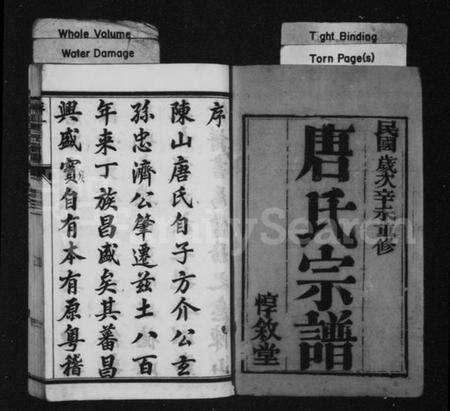 Whole Volume
Water Damage
Tight Binding
Torn Page(s)
民國歲次辛未重修
唐氏宗譜
惇敘堂
序
陳山唐氏自子方介公玄
孫忠濟公肇遷茲土八百
年來丁族昌盛矣其蕃昌
興盛實自有本有原粵稽
FamilySearch